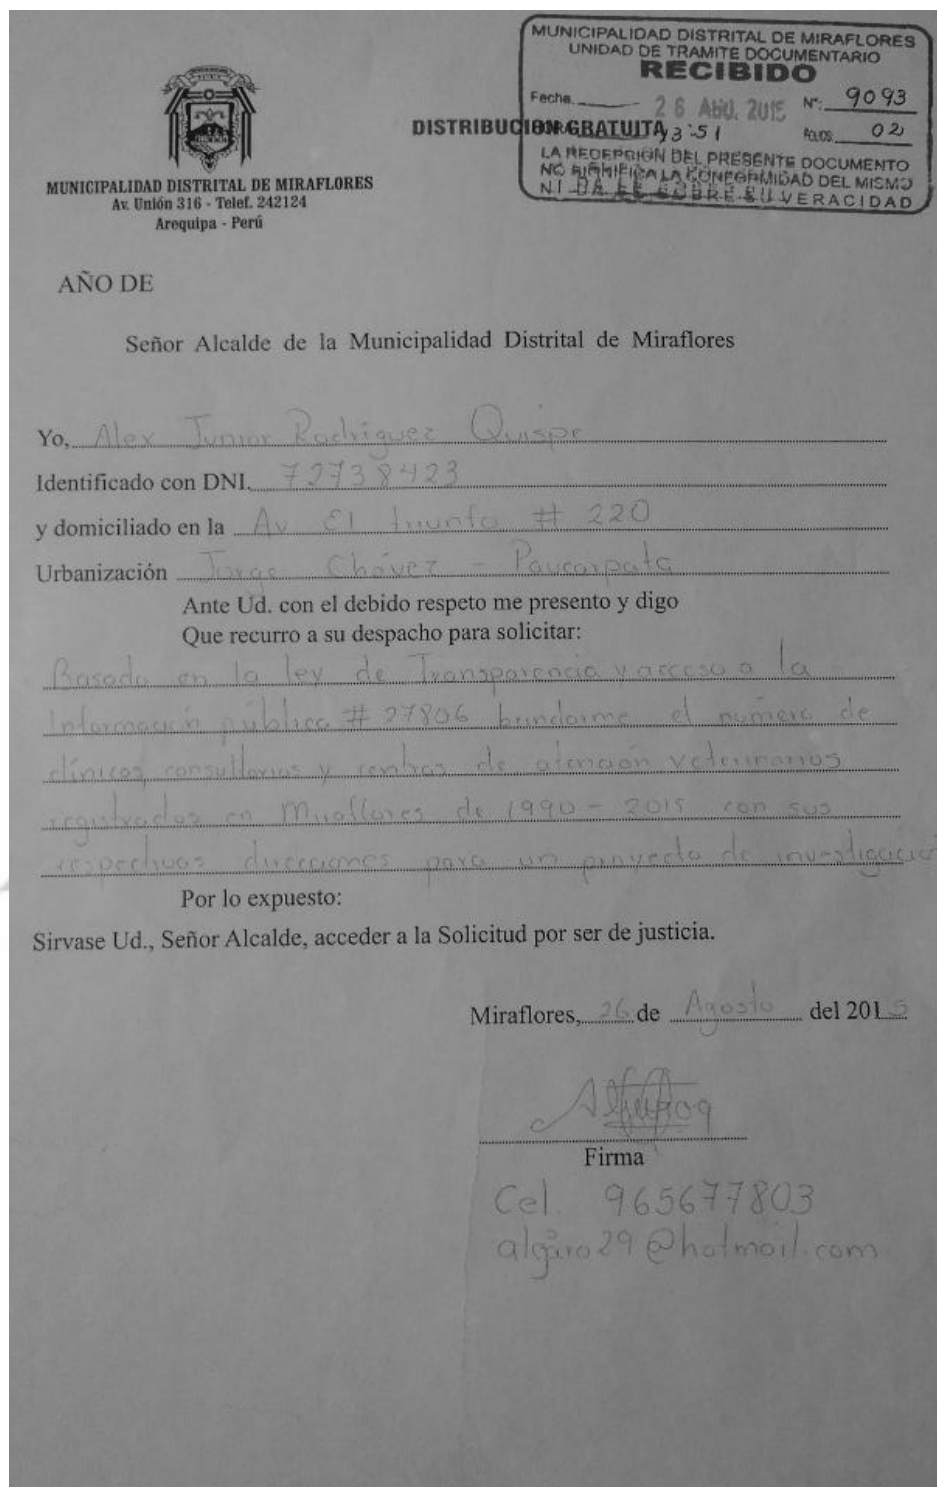 MUNICIPALIDAD DISTRITAL DE MIRAFLORES
UNIDAD DE TRAMITE DOCUMENTARIO
RECIBIDO
Fecha 26 AGO. 2015 N°: 9093
DISTRIBUCION GRATUITA 3:51 Folios 02
LA RECEPCION DEL PRESENTE DOCUMENTO
NO SIGNIFICA LA CONFORMIDAD DEL MISMO
NI DA FE SOBRE SU VERACIDAD
MUNICIPALIDAD DISTRITAL DE MIRAFLORES
Av. Unión 316 - Telef. 242124
Arequipa - Perú
AÑO DE
Señor Alcalde de la Municipalidad Distrital de Miraflores
Yo, Alex Junior Rodriguez Quispe
Identificado con DNI. 72738423
y domiciliado en la Av El triunfo # 220
Urbanización Jorge Chávez - Paucarpata
Ante Ud. con el debido respeto me presento y digo
Que recurro a su despacho para solicitar:
Basado en la ley de Transparencia y acceso a la
Información pública # 27806 brindarme el número de
clínicas, consultorios y centros de atención veterinarios
registrados en Miraflores de 1990 - 2015 con sus
respectivas direcciones para un proyecto de investigación
Por lo expuesto:
Sirvase Ud., Señor Alcalde, acceder a la Solicitud por ser de justicia.
Miraflores, 26 de Agosto del 2015
Firma
Cel. 965677803
algaro29@hotmail.com